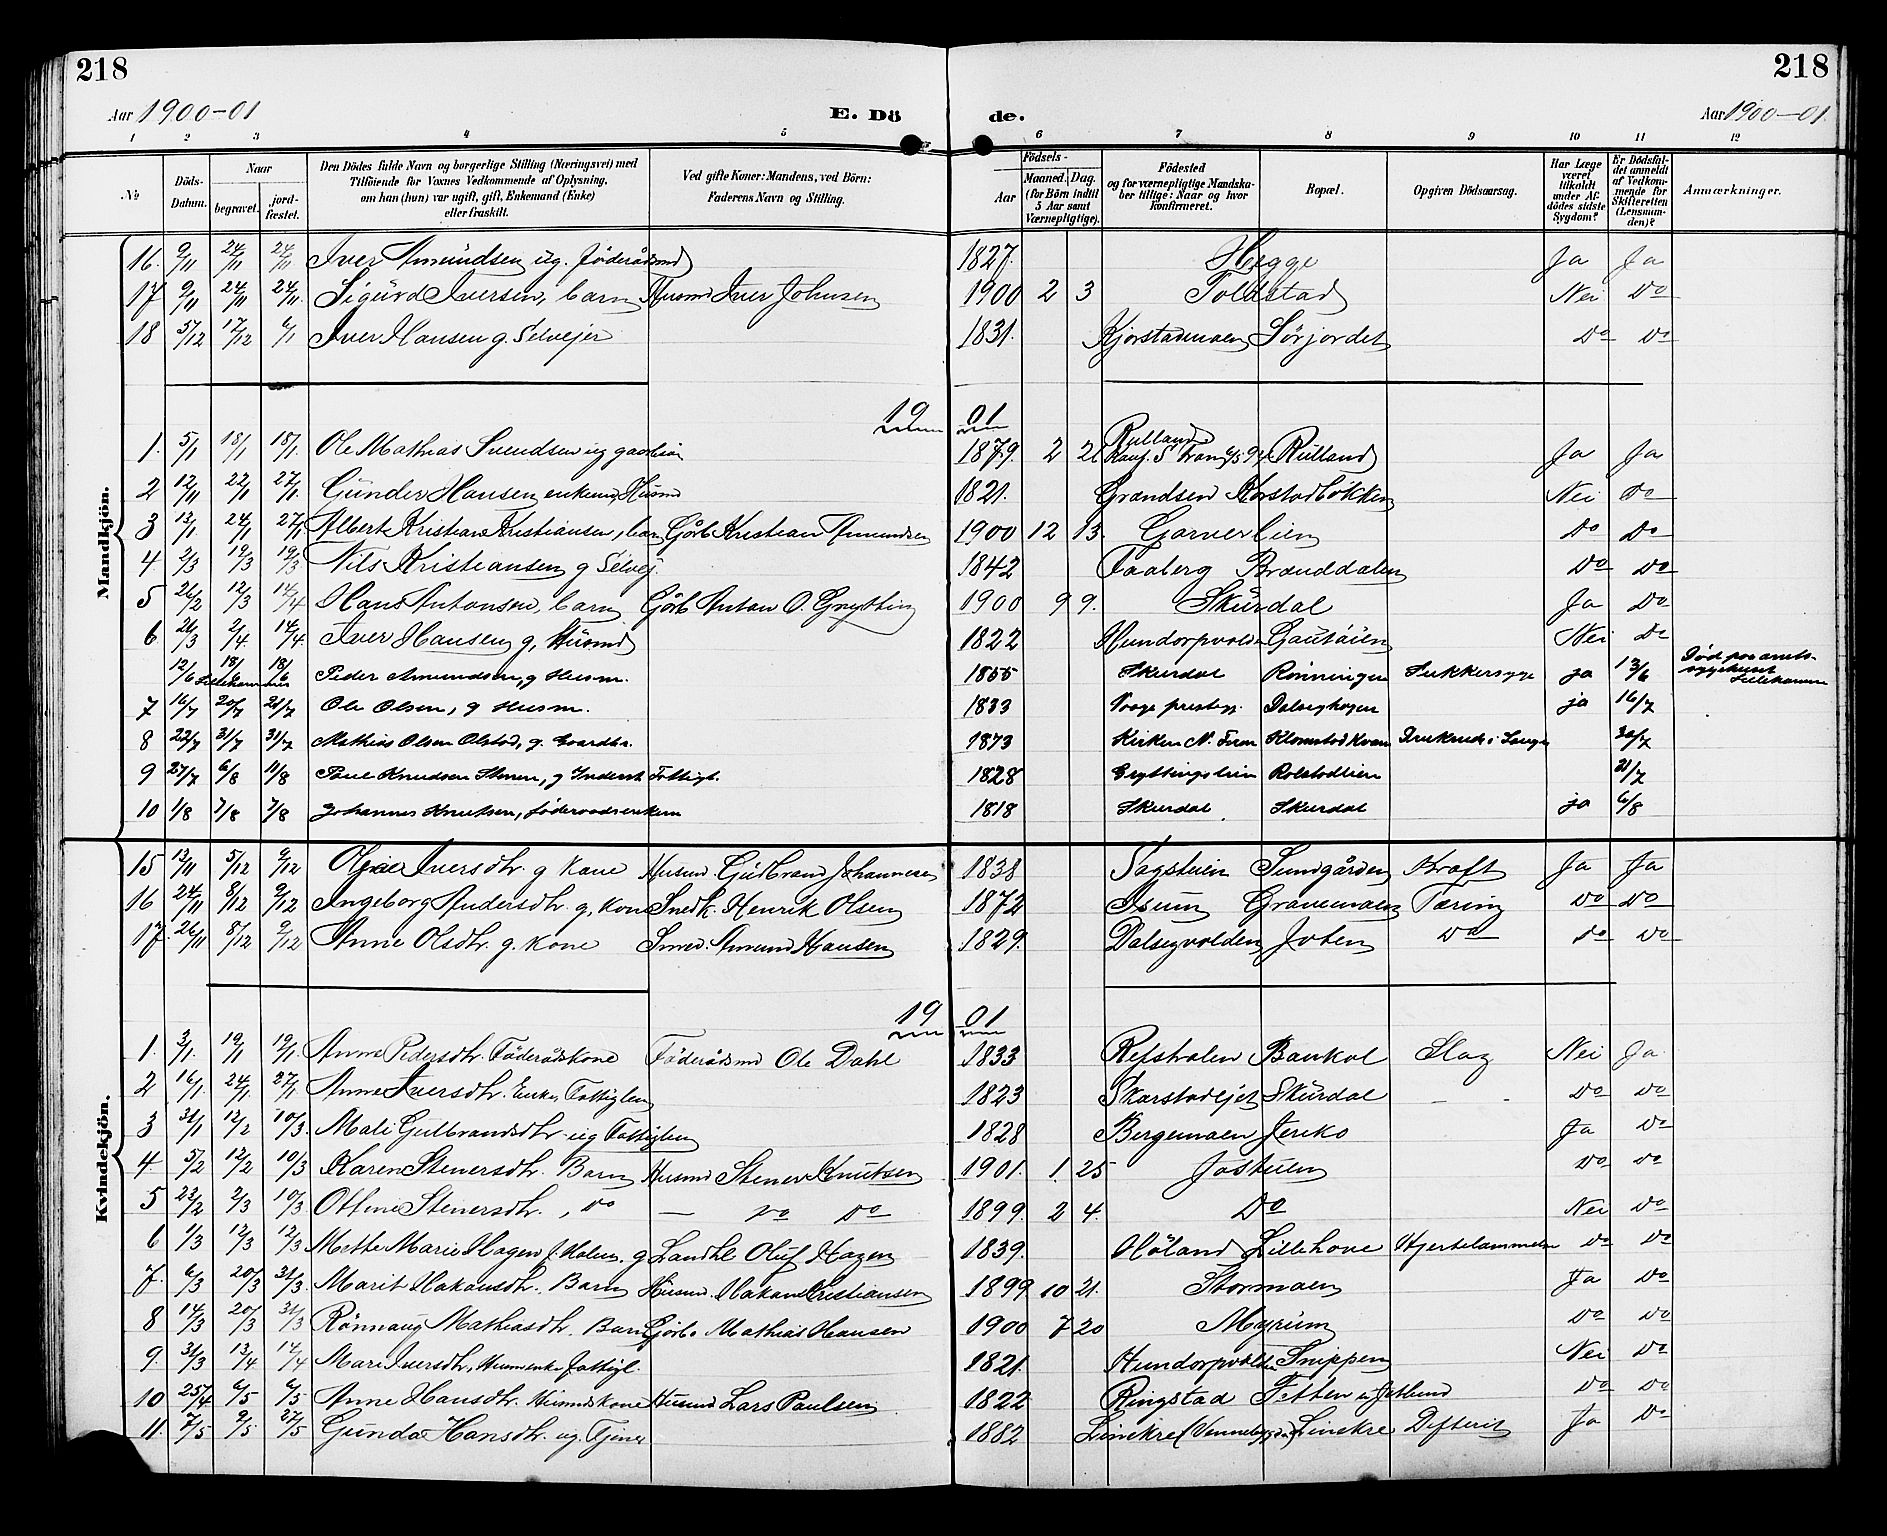 218
218
Aar 1900-01
E. Dö
de.
Aar 1900-01.
1 2 3 4 5 6 7 8 9 10 11 12
No
Döds-Datum.
Naar
begravet.
jord-fæstet.
Den Dödes fulde Navn og borgerlige Stilling (Næringsvei) med Tilföiende for Voxnes Vedkommende af Oplysning, om han (hun) var ugift, gift, Enkemand (Enke) eller fraskilt.
Ved gifte Koner: Mandens, ved Börn: Faderens Navn og Stilling.
Födsels-
Aar
Maaned. Dag. (for Börn indtil 5 Aar samt Værnepligtige).
Födested og for værnepligtige Mandskaber tillige: Naar og hvor konfirmeret.
Bopæl.
Opgiven Dödsaarsag.
Har Læge været tilkaldt under Afdödes sidste Sygdom?
Er Dödsfaldet anmeldt af Vedkommende for Skifteretten (Lensmanden)?
Anmærkninger.
Mandkjön.
16. 9/11 24/11 24/11 Iver Amundsen ug. Föderådsmd 1827. Hegge Ja Ja
17 9/11 24/11 24/11 Sigurd Iversen, barn Husmd Iver Johnsen 1900 2 3 Toldstad Nei Do
18 5/12 17/12 6/1 Iver Hansen g. Selvejer 1831. Kjorstadmoen Sørjordet Do Do
19 01
1. 5/1 18/1 18/1 Ole Mathias Svendsen ug 1879. 2 21 Rulland Rulland Ja Ja
2 12/11 22/1 27/1 Gunder Hansen enkemd, Husmd 1821. Grandsen Nei Do
3 13/1 24/1 27/1 Albert Kristian Kristiansen, barn Görb Kristian Amundsen 1900 12 13. Garverlien Do Do
4 2/3 19/3 19/3 Nils Kristiansen g Selvej. 1842 Faaberg Brænddalen Do Do
5 26/2 12/3 14/4 Hans Antonsen, barn Görb Anton O. Gryttin 1900 9 9. Skurdal Ja Do
6 26/3 2/4. 14/4. Iver Hansen g, Husmd 1822 Hundorpvolden Nei Do
12/6 18/6 18/6 Peder Amundsen, g Husm. 1855 Skurdal Rönningen Sukkersyge ja 13/6 Död paa amts-sygehuset Lillehammer
Lillehammer
7 16/7 20/7 21/7 Ole Olsen, g Husm. 1833 Vaage prestegj. Dalseghagen ja 16/7
8 22/7 31/7 31/7 Mathias Olsen Olstad, g. Gaardbr. 1873 Kirken N. Fron Druknede i Laagen 30/7
9 27/7 6/8 11/8 Paul Knudsen g Inderst Fattigl. 1828 Gryttingslien Rolstadlien 31/7
10 1/8 7/8 7/8 Johannes Knutsen, föderaadsenkem 1818 Skurdal Skurdal ja 6/8
Kvindekjön.
15 13/11 5/12 9/12 Iversdtr. g kone Husmd. Gulbrand Johannesen 1838 Sundgården Kræft Ja Ja
16 24/11 8/12 9/12 Ingeborg Andersdtr. g, kone Snedk. Henrik Olsen 1872 Isum Gravemoen Tæring Do Do
17. 26/11 8/12 9/12 Anne Olsdtr. g. kone Smed. Amund Hansen 1829. Dalsegvolden Joten Do Do Do
19 01
1. 3/1. 19/1 19/1. Anne Pedersdtr. Föderådskone Föderådsmd Ole Dahl 1833 Baukol Slag Nei Ja
2 16/1. 24/1. 27/1 Anne Iversdtr. Enke, Fattiglem 1823 Skarstadejet Skurdal Do Do
3 31/1 12/2 10/3. Mali Gulbrandsdtr ug Fattiglem 1828 Bergemoen Jeriko Ja Do
4 5/2 12/2 10/3 Karen Stenersdtr. Barn Husmd Stener Knutsen 1901. 1. 25 Do Do
5 23/2 2/3 10/3 Ottine Stenersdtr., Do — Do Do 1899. 2 4. Do Nei Do
6 1/3 12/3 12/3 Mette Marie Hagen f. Holm. g Landhl Oluf Hagen 1839. Höland Lillehove Hjertelammelse Do Do
7. 6/3 20/3 31/3. Marit Hakansdtr. Barn Husmd. Hakan Kristiansen 1899 10 21. Stormoen Ja Do
8 14/3 20/3 31/3 Rönnaug Mathiasdtr. Barn Gjörb. Mathias Hansen 1900 7 20 Myrum Do Do
9. 31/3 13/4 14/4 Mari Iversdtr, Husmenke fattigl. 1821. Hundorpvolden Snippen Nei Do
10 25/4 6/5 6/5 Anne Hansdtr. Husmdskone Husmd Lars Paulsen 1822 Ringstad Do Do
11. 7/5 9/5 27/5 Gunda Hansdtr. ug. Tjener 1882 Linekre Linekre Difterit Ja Do